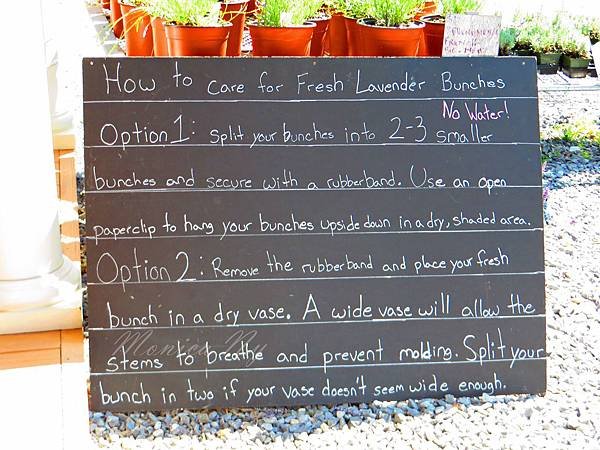 How to care for Fresh Lavender Bunches
No Water!
Option 1: Split your bunches into 2-3 smaller
bunches and secure with a rubberband. Use an open
paperclip to hang your bunches upside down in a dry, shaded area.
Option 2: Remove the rubberband and place your fresh
bunch in a dry vase. A wide vase will allow the
stems to breathe and prevent molding. Split your
bunch in two if your vase doesn't seem wide enough.